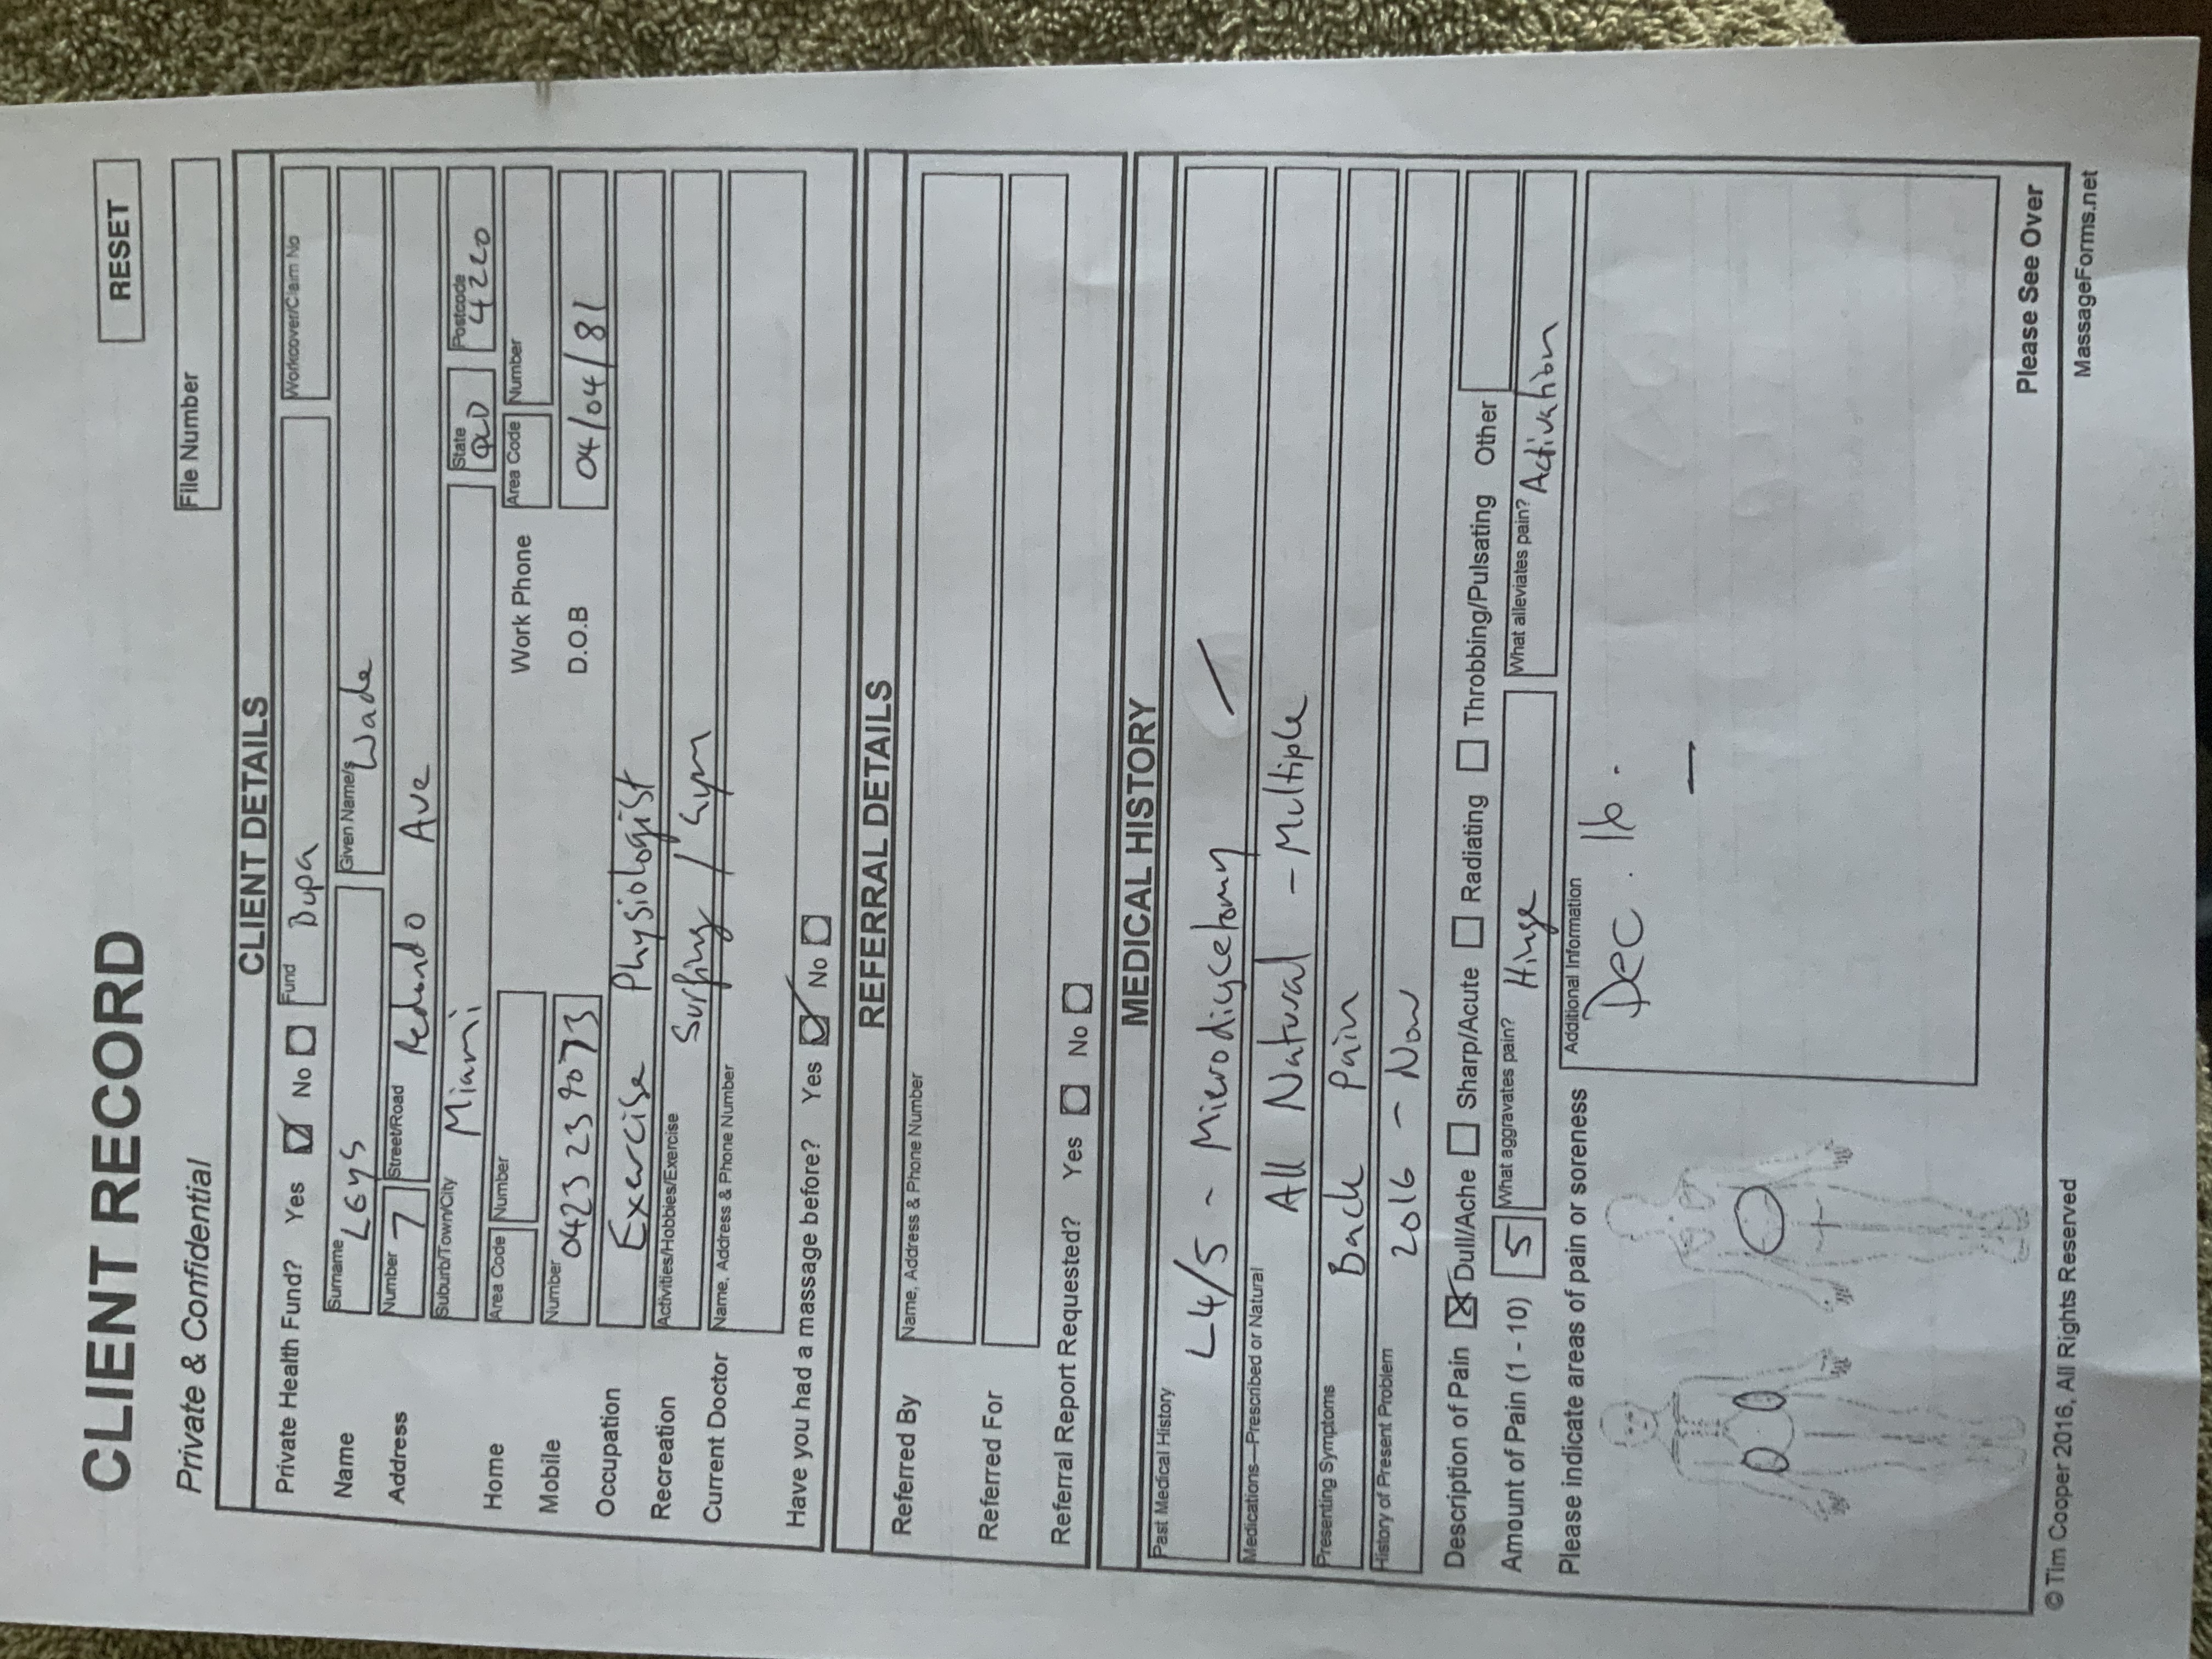 RESET
CLIENT RECORD
Private & Confidential
File Number
CLIENT DETAILS
Private Health Fund? Yes No Fund Bupa Workcover/Claim No
Name Surname LEys Given Name/s Wade
Address Number 7 Street/Road Redondo Ave
Suburb/Town/City Miami State QLD Postcode 4220
Home Area Code Number Work Phone Area Code Number
Mobile Number 0423 239073 D.O.B 04/04/81
Occupation Exercise Physiologist
Recreation Activities/Hobbies/Exercise Surfing / Gym
Current Doctor Name, Address & Phone Number
Have you had a massage before? Yes No
REFERRAL DETAILS
Referred By Name, Address & Phone Number
Referred For
Referral Report Requested? Yes No
MEDICAL HISTORY
Past Medical History L4/5 - Microdiscetomy
Medications—Prescribed or Natural All Natural - Multiple
Presenting Symptoms Back Pain
History of Present Problem 2016 - Now
Description of Pain Dull/Ache Sharp/Acute Radiating Throbbing/Pulsating Other
Amount of Pain (1 - 10) 5 What aggravates pain? Hinge What alleviates pain? Activation
Please indicate areas of pain or soreness Additional Information
Dec. 16.
Please See Over
© Tim Cooper 2016, All Rights Reserved MassageForms.net